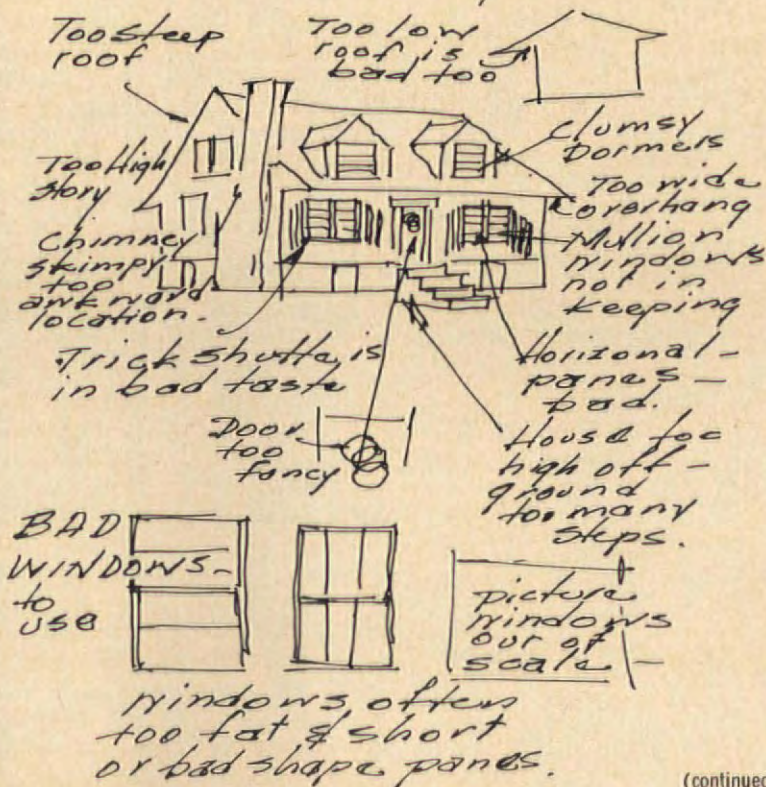 Too steep
roof
Too low
roof is
bad too
Clumsy
Dormers
Too High
Story
Too wide
overhang
Chimney
skimpy
too
awkward
location.
Mullion
windows
not in
keeping
Trick shutte is
in bad taste
Horizonal -
panes -
bad.
Door
too
fancy
House too
high off -
ground
too many
steps.
BAD
WINDOWS -
to
use
picture
windows
out of
scale -
windows often
too fat & short
or bad shape panes.
(continued